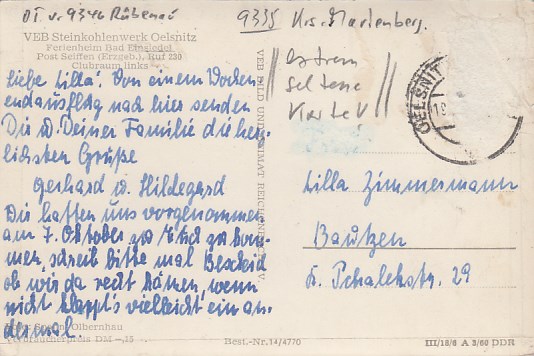 OT v. 9346 Rübenau
9335 Krs. Marienberg.
VEB Steinkohlenwerk Oelsnitz
Ferienheim Bad Einsiedel
Post Seiffen (Erzgeb.), Ruf 230
Clubraum links
extrem
seltene
Karte V
OELSNITZ
Liebe Lilla! Von einem Wochen
endausflug nach hier senden
Dir u. Deiner Familie die herz-
lichsten Grüße
Gerhard u. Hildegard
Wir hatten uns vorgenommen
am 7. Oktober zu Euch zu kom-
men, schreib bitte mal Bescheid
ob wir da recht kämen, wenn
nicht klappt's vielleicht ein an-
dermal.
VEB BILD UND HEIMAT REICHENBACH I. V.
Lilla Zimmermann
Bautzen
Olbernhau
Verbraucherpreis DM -,15
Best.-Nr. 14/4770
III/18/6 A 3/60 DDR